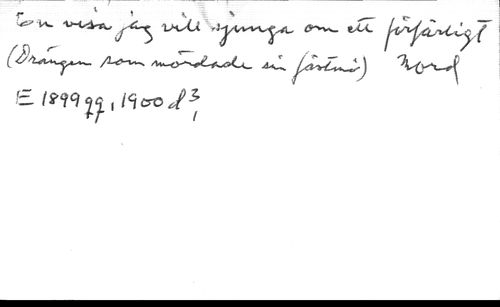 En visa jag vill sjunga om ett förfärligt
(Drängen som mördade sin fästmö) mord
E 1899 qq, 1900 d 3,